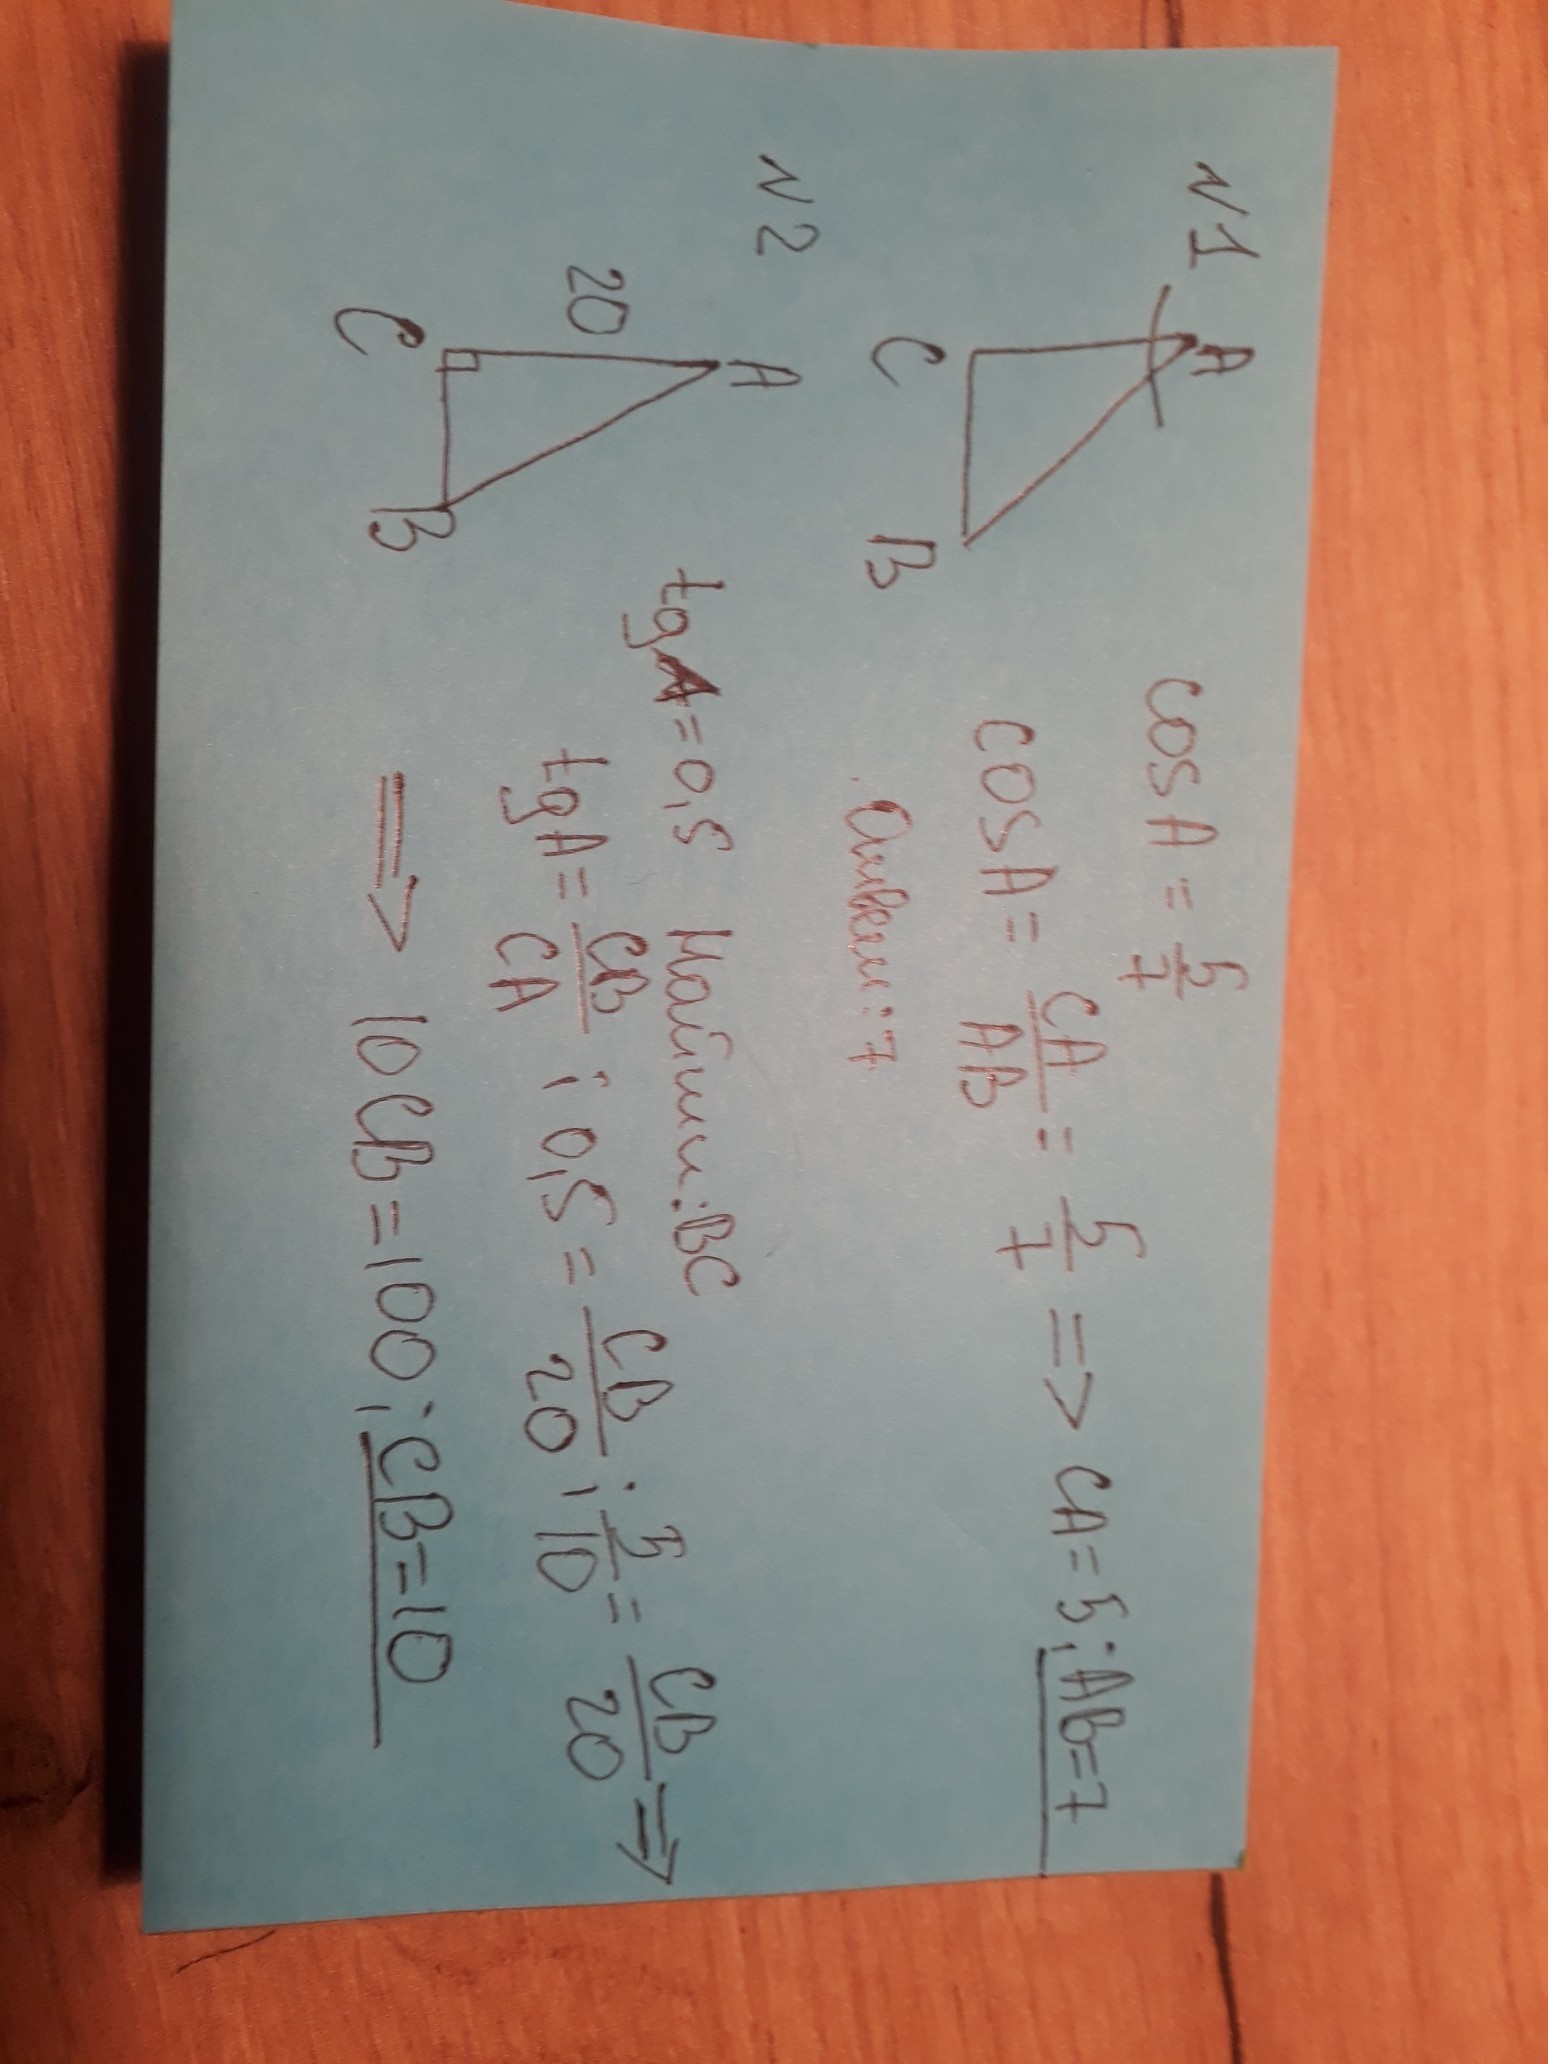 N1
A
C
B
cos A = 5/7
cos A = CA/AB = 5/7 => CA = 5; AB = 7
Ответ: 7
N2
A
20
C
B
tg A = 0,5 Найти: BC
tg A = CB/CA ; 0,5 = CB/20 ; 5/10 = CB/20 =>
=> 10CB = 100; CB = 10